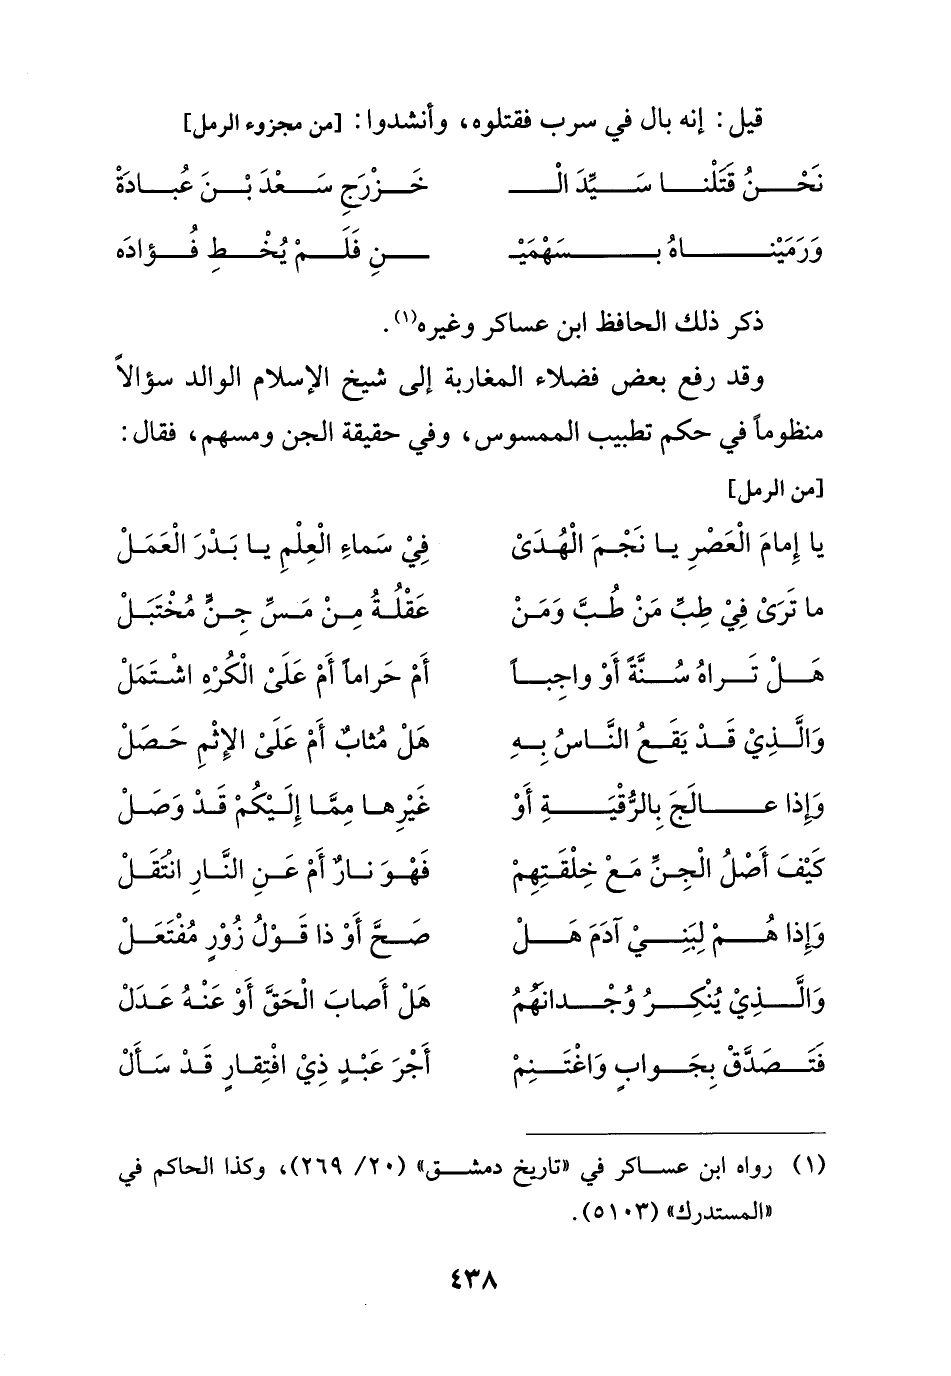 قيل: إنه بال في سرب فقتلوه، وأنشدوا: [من مجزوء الرمل]
نَحْـــنُ قَتَلْنـــا سَـــيِّدَ الْـــ خَـــزْرَجِ سَـــعْدَ بْـــنَ عُبـــادَةْ
وَرَمَيْنـــاهُ بـــسَهْمَيْـــ ـــنِ فَلَـــمْ يُخْـــطِ فُـــؤادَه
ذكر ذلك الحافظ ابن عساكر وغيره(١).
وقد رفع بعض فضلاء المغاربة إلى شيخ الإسلام الوالد سؤالاً
منظوماً في حكم تطبيب الممسوس، وفي حقيقة الجن ومسهم، فقال:
[من الرمل]
يا إِمامَ الْعَصْرِ يـا نَجْـمَ الْهُـدَىْ فِيْ سَماءِ الْعِلْمِ يـا بَـدْرَ الْعَمَـلْ
ما تَرَىْ فِيْ طِبِّ مَنْ طُبَّ وَمَنْ عَقْلُـهُ مِـنْ مَـسِّ جِـنٍّ مُخْتَبَـلْ
هَـــلْ تَـــراهُ سُـــنَّةً أَوْ واجِبـــاً أَمْ حَراماً أَمْ عَلَىْ الْكُرْهِ اشْـتَمَلْ
وَالَّـــذِيْ قَـــدْ يَقَـــعُ النَّـــاسُ بِـــهِ هَلْ مُثابٌ أَمْ عَلَىْ الإِثْمِ حَـصَلْ
وَإِذا عـــالَجَ بِالرُّقْيَـــةِ أَوْ غَيْرِهـا مِمَّـا إِلَـيْكُمْ قَـدْ وَصَـلْ
كَيْفَ أَصْلُ الْجِـنِّ مَـعْ خِلْقَـتِهِمْ فَهْـوَ نـارٌ أَمْ عَـنِ النَّـارِ انْتَقَـلْ
وَإِذا هُـــمْ لِبَنِـــيْ آدَمَ هَـــلْ صَـــحَّ أَوْ ذا قَـــوْلُ زُوْرٍ مُفْتَعَـــلْ
وَالَّـــذِيْ يُنْكِـــرُ وُجْـــدانَهُمُ هَلْ أَصابَ الْحَقَّ أَوْ عَنْـهُ عَـدَلْ
فَتَـــصَدَّقْ بِجَـــوابٍ وَاغْتَـــنِمْ أَجْرَ عَبْـدٍ ذِيْ افْتِقـارٍ قَـدْ سَـأَلْ
(١) رواه ابن عساكر في «تاريخ دمشق» (٢٠/ ٢٦٩)، وكذا الحاكم في
«المستدرك» (٥١٠٣).
٤٣٨